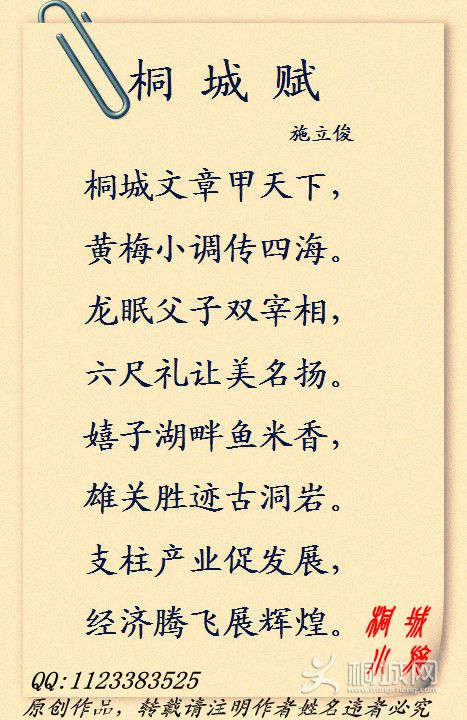 桐城赋
施立俊
桐城文章甲天下，
黄梅小调传四海。
龙眠父子双宰相，
六尺礼让美名扬。
嬉子湖畔鱼米香，
雄关胜迹古洞岩。
支柱产业促发展，
经济腾飞展辉煌。
桐城
小将
桐城网
www.itongcheng.com
QQ:1123383525
原创作品，转载请注明作者姓名违者必究